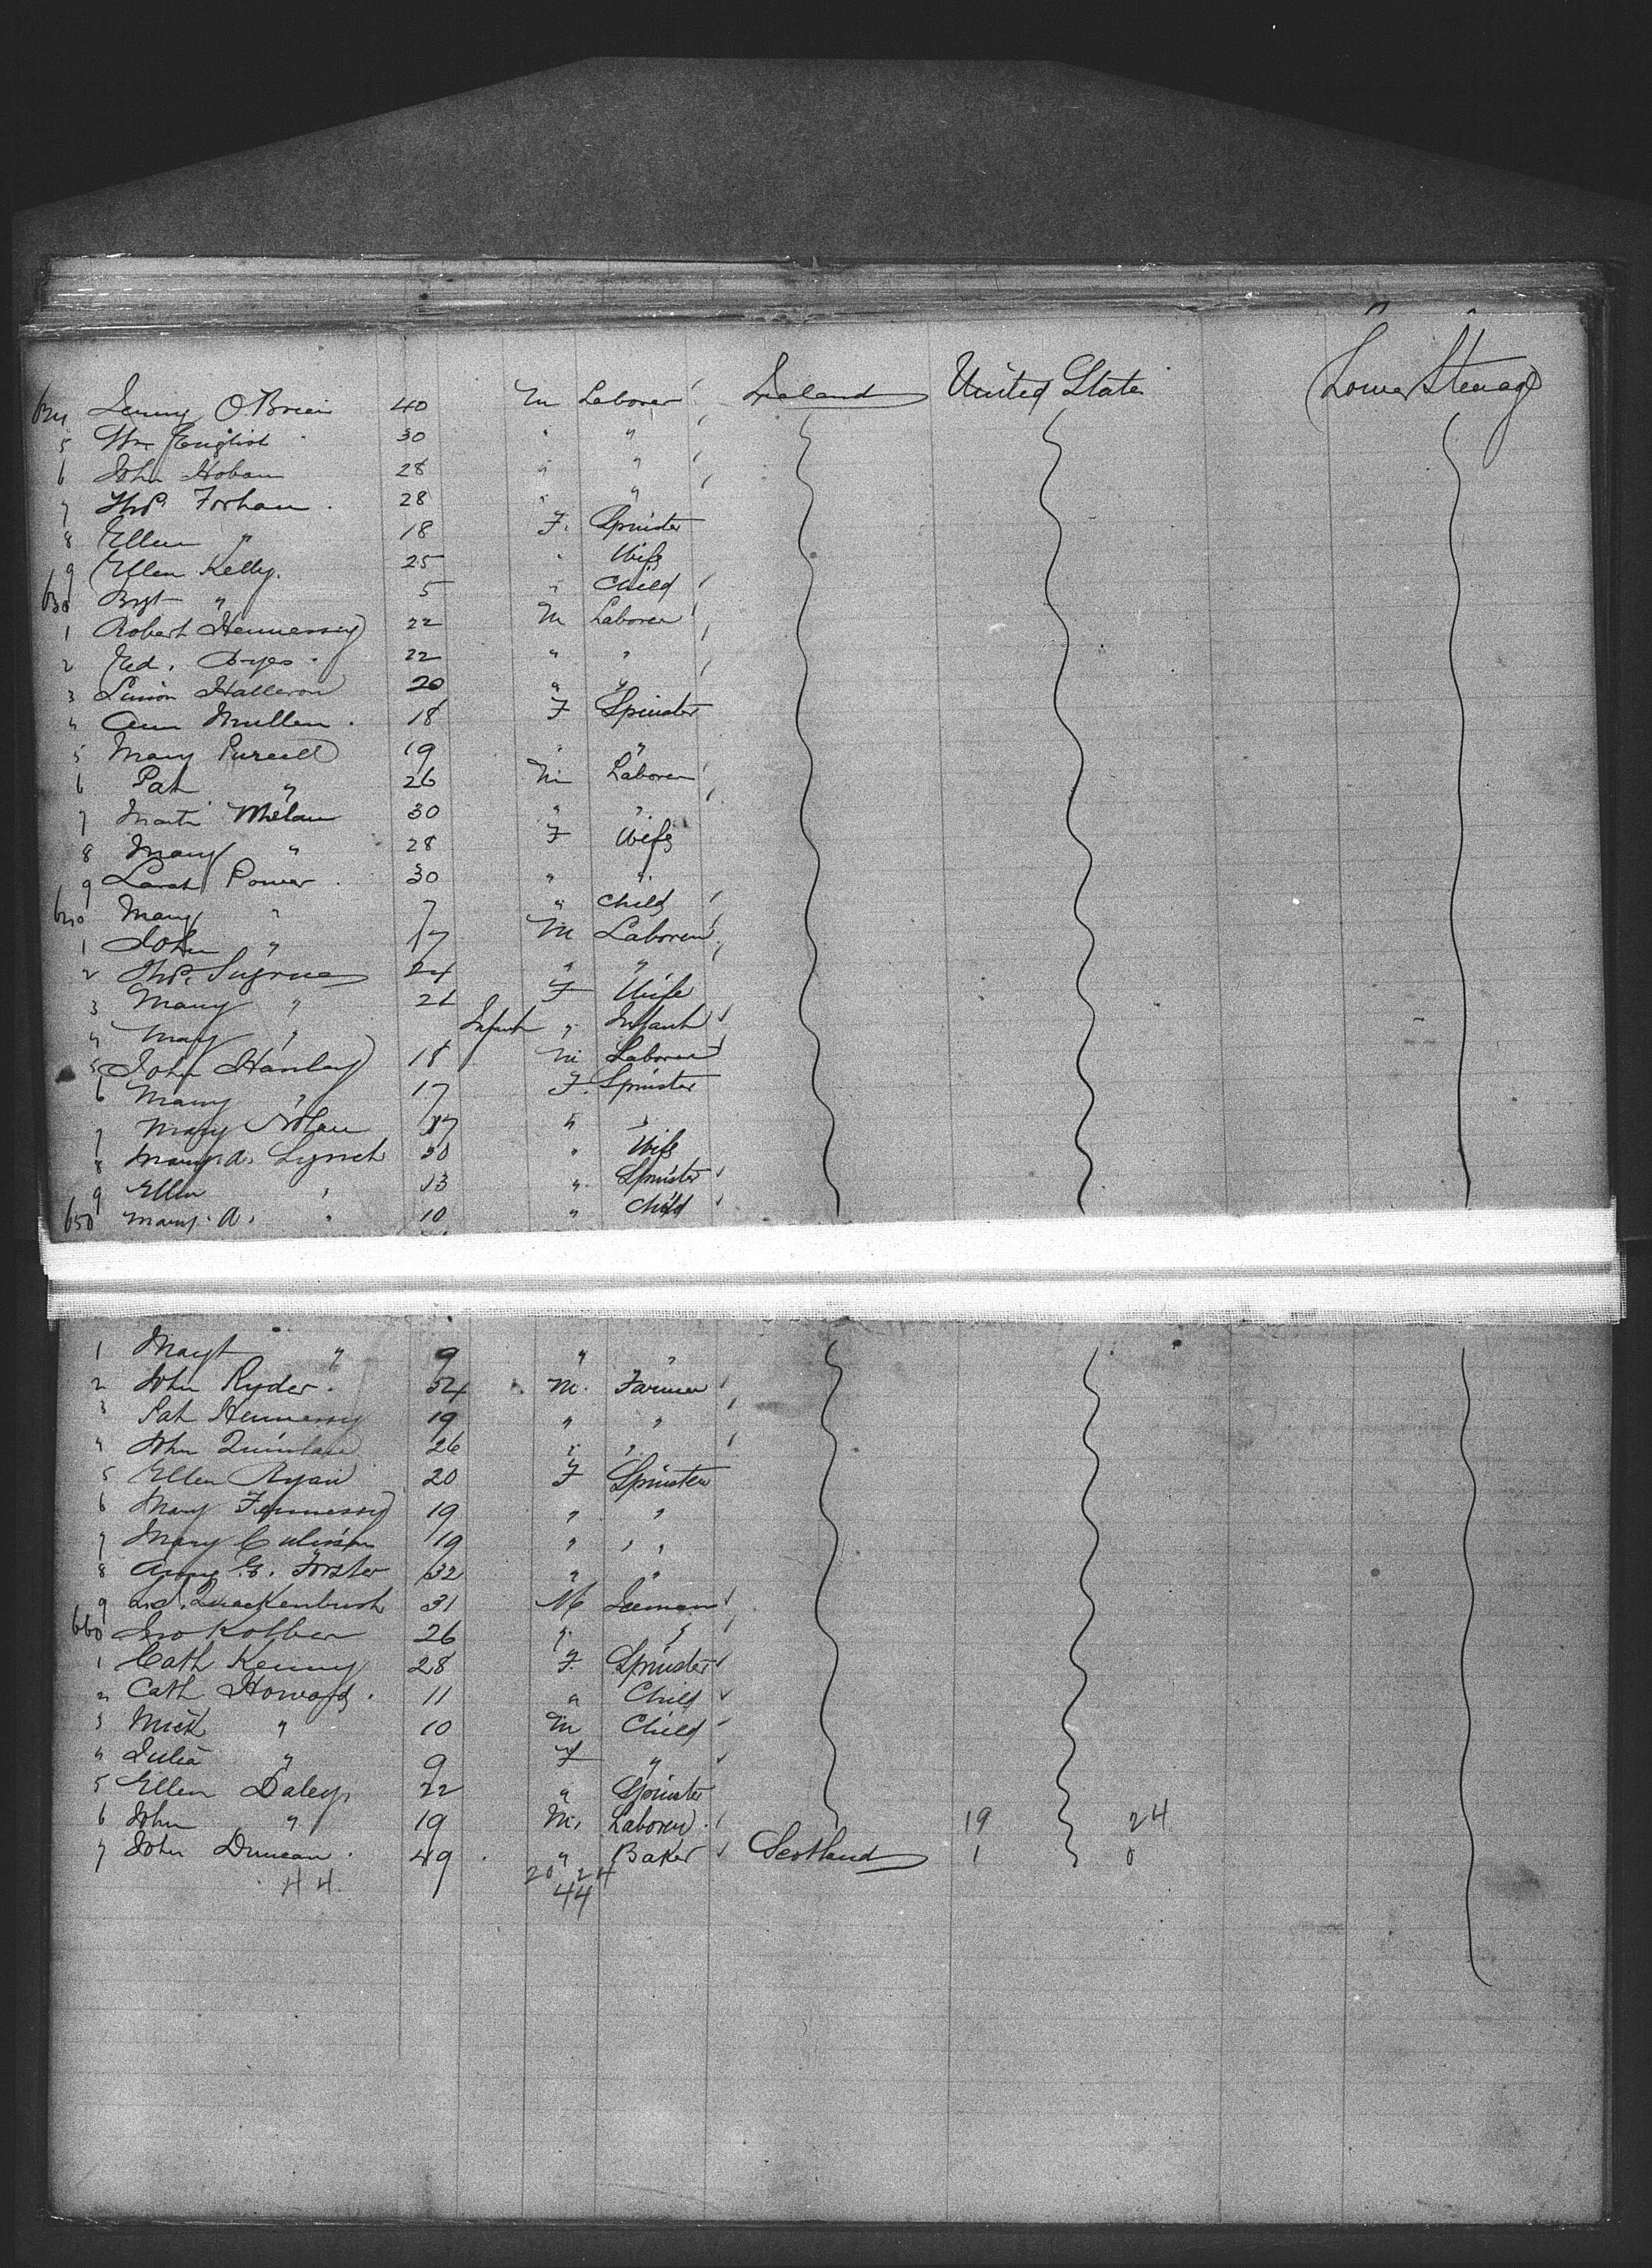 624 O'Brien 40 M Laborer Ireland United State Lower Steerage
5 Wm English 30 " "
6 John Hoban 28 " "
7 Thos. Forhan 28 " "
8 Ellen " 18 F. Spinster
9 Ellen Kelly. 25 " Wife
630 Bgt " 5 " Child
1 Robert Hennessy 22 M Laborer
2 Ed. 22 " "
3 Halleron 20 " "
4 Ann Mullen 18 F Spinster
5 Mary Purcell 19 " "
6 Pat " 26 M Laborer
7 Martin 30 " "
8 Mary " 28 F Wife
9 Sarah Power 30 " "
640 Mary " 7 " Child
1 John " 17 M Laborer
2 Thos. 24 " "
3 Mary " 21 F Wife
4 Mary " Infant " Infant
5 John Hanley 18 M Laborer
6 Mary " 17 F. Spinster
7 Mary Nolan 17 " "
8 Mary A. Lynch 30 " Wife
9 Ellen " 13 " Spinster
650 Mary A. " 10 " Child
1 Magt " 9 " "
2 John Ryder. 54 M. Farmer
3 Pat Hennessy 19 " "
4 John Quinlan 26 " "
5 Ellen Ryan 20 F Spinster
6 Mary Fennessy 19 " "
7 Mary 19 " "
8 E. Forster 32 " "
9 Quackenbush 31 M
660 Jno Kolber 26 " "
1 Cath Kenny 28 F. Spinster
2 Cath Howard. 11 " Child
3 Mick " 10 M Child
4 Julia " 9 F "
5 Ellen Daley, 22 " Spinster
6 John " 19 M. Laborer. 19 24
7 John Duncan. 49 " Baker Scotland 1 0
44. 20 24
44